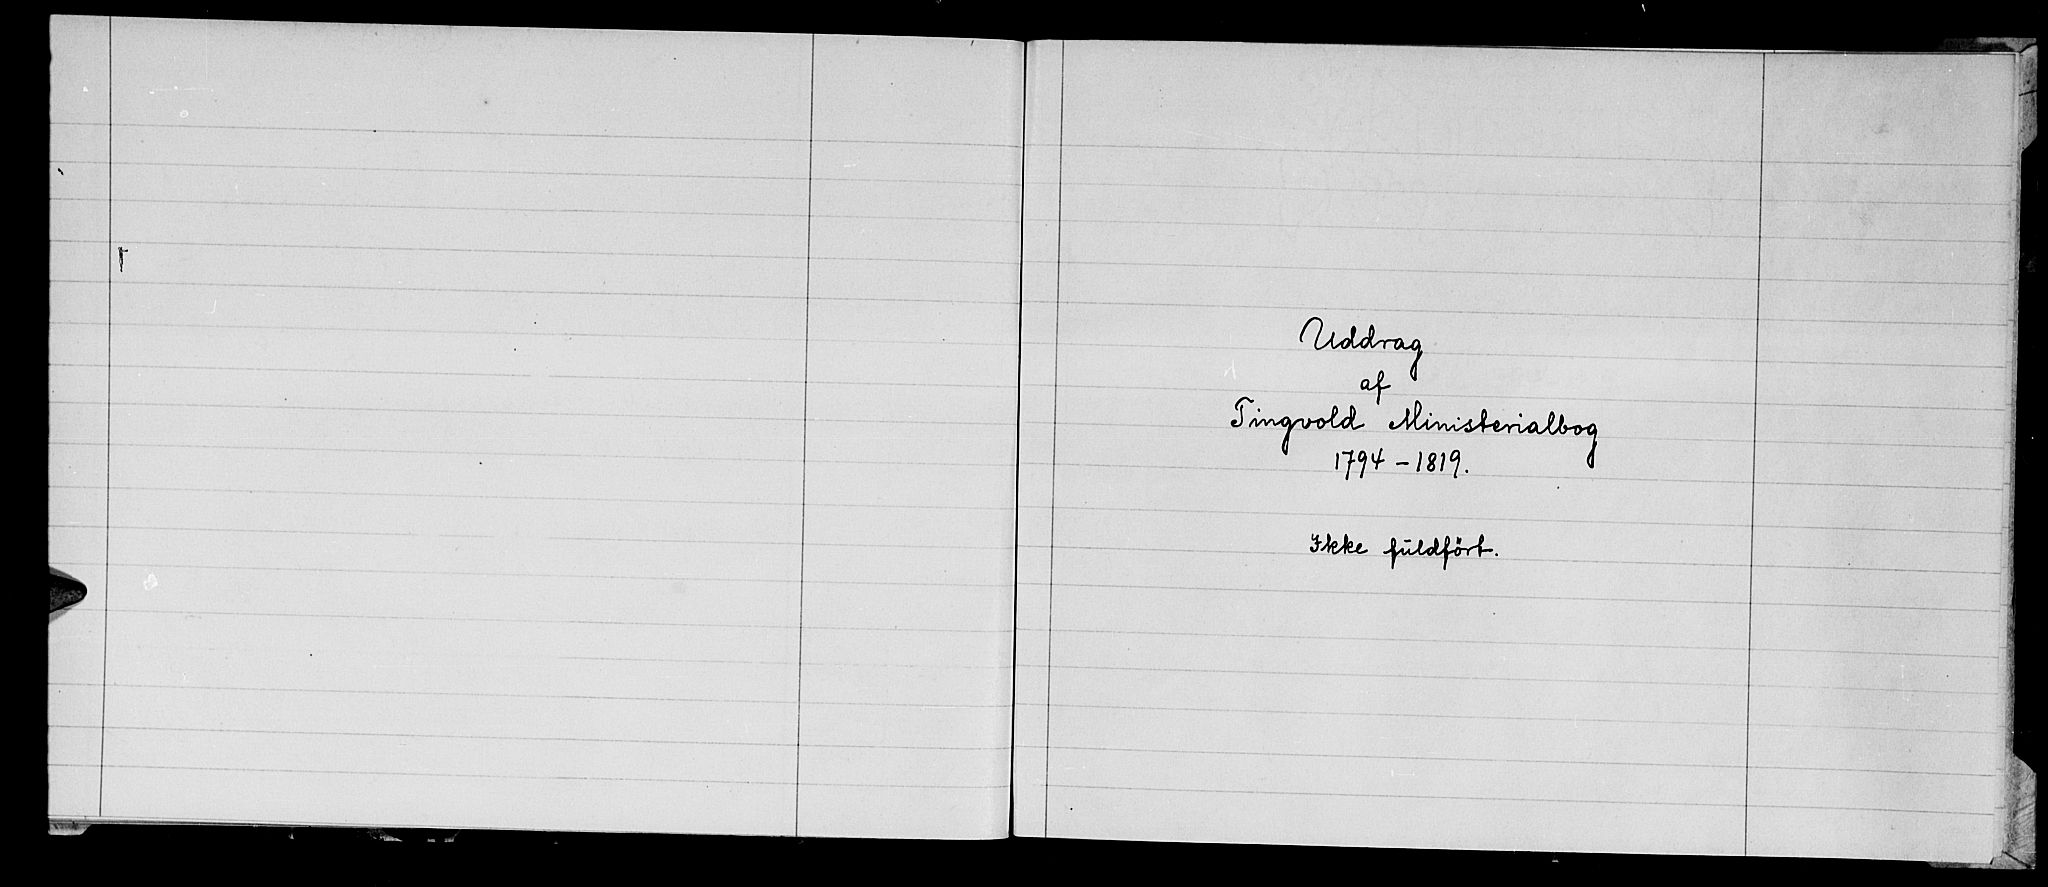 Uddrag
af
Tingvold Ministerialbog
1794 – 1819.
Ikke fuldfört.